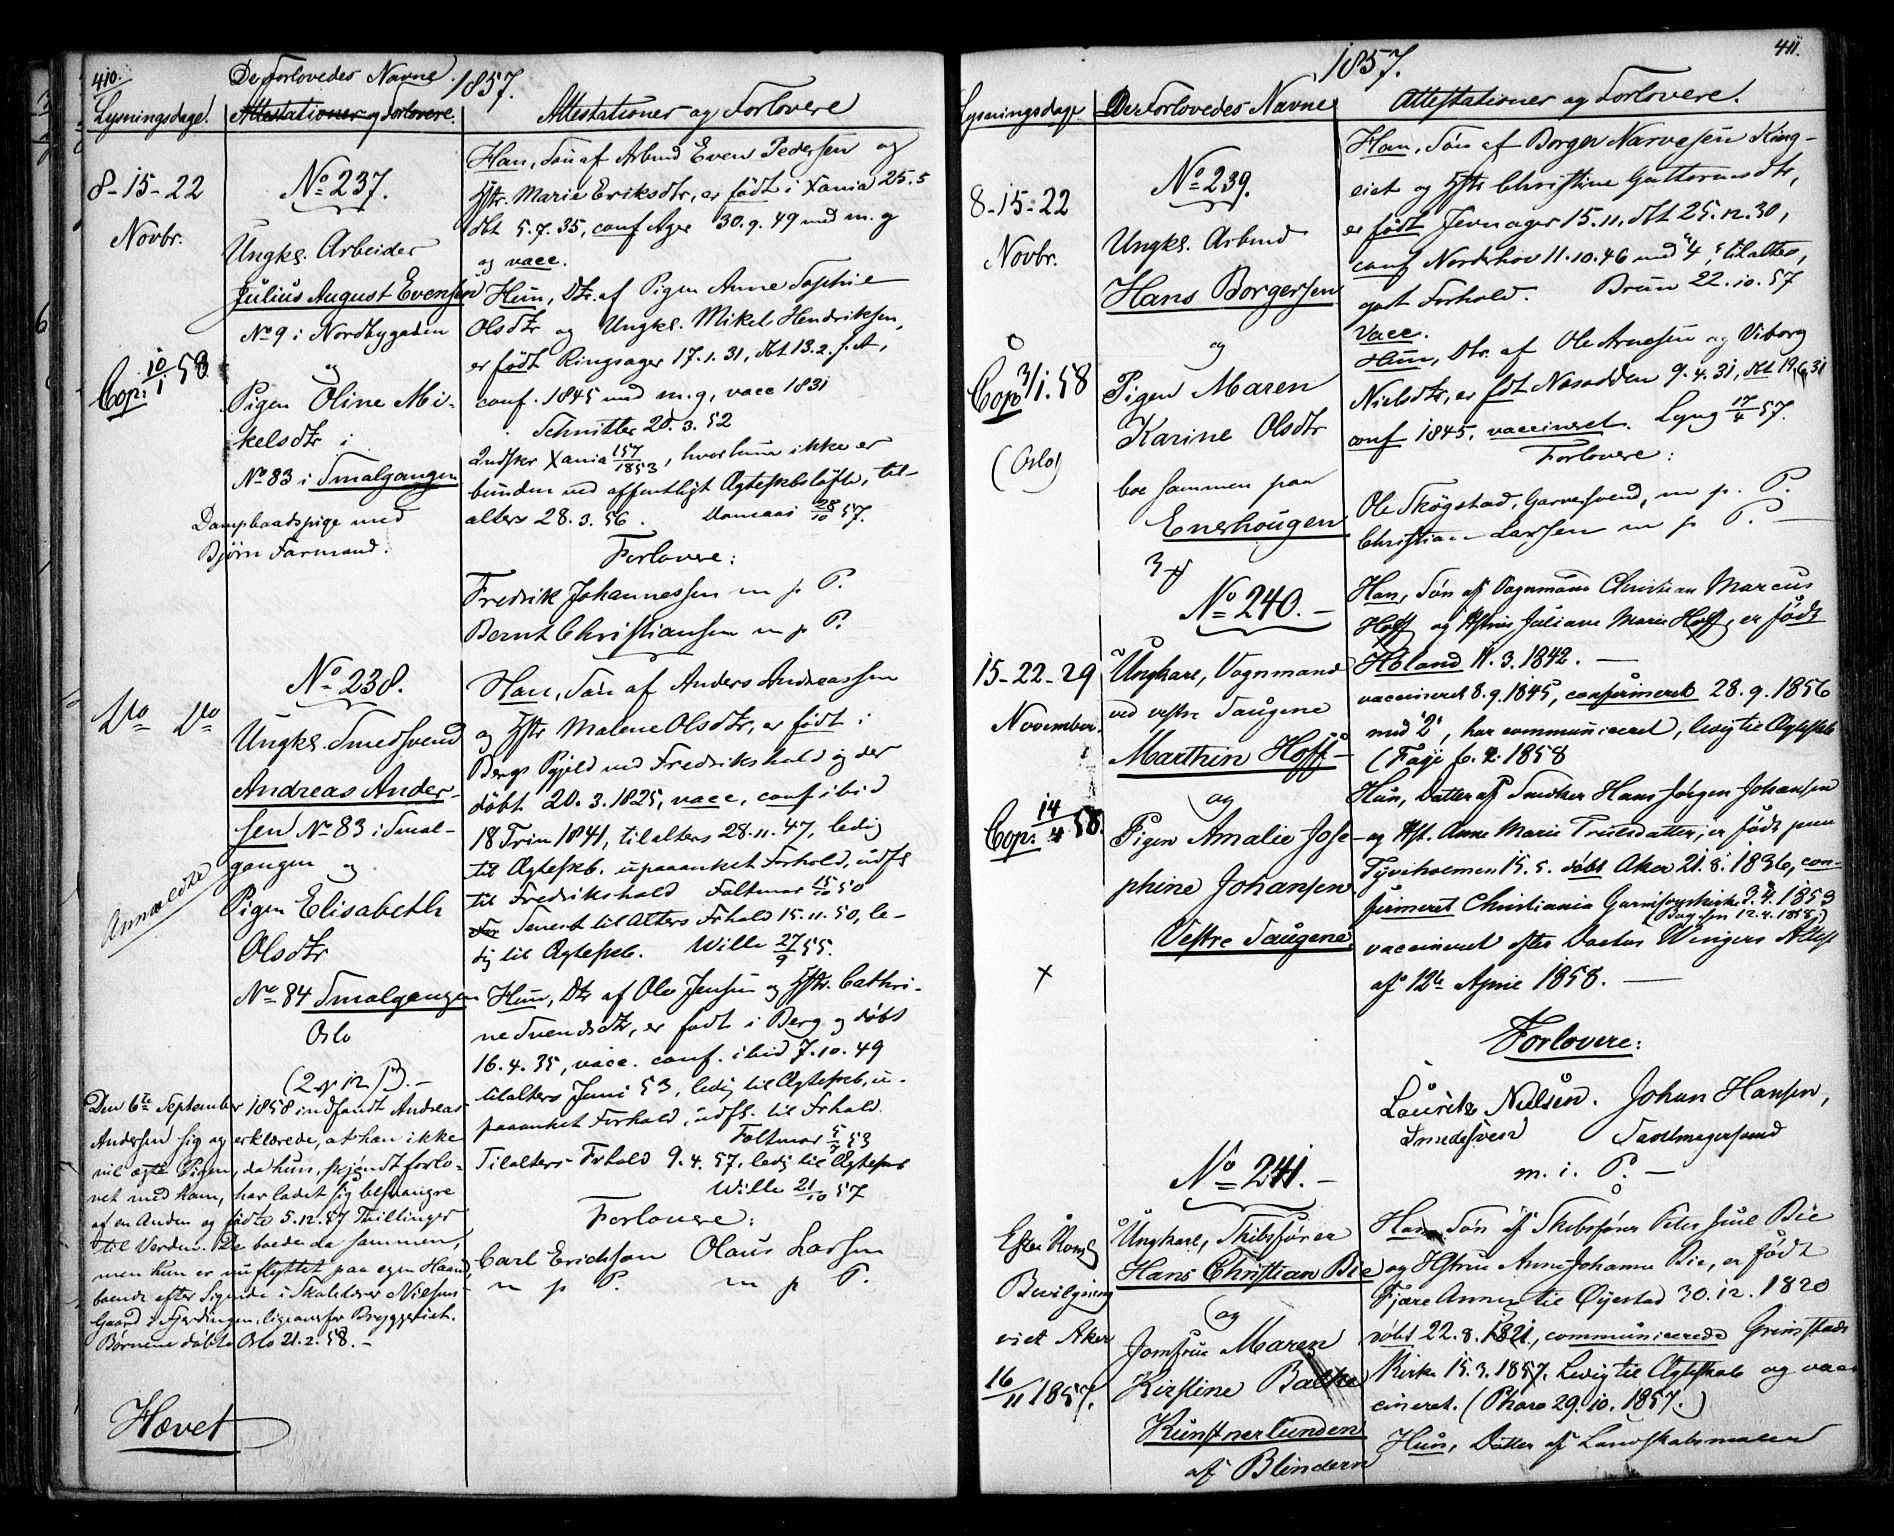 410.
De Forlovedes Navne. 1857.
Lysningsdage. Attestationer og Forlovere. Attestationer og Forlovere
8-15-22
Novbr.
Cop: 10/1 58
No 237.
Ungks. Arbeider
Julius August Evensen
No 9 i Nordbygaden
og
Pigen Oline Mi-
kelsdtr i
No 83 i Smalgangen
Dampbaadspige med
Bjørn Farmand.
Han, Søn af Arbmd Even Pedersen og
Hstr. Marie Eriksdtr, er født i Xania 25.5
dbt 5.7.35, conf Ager 30.9.49 med m. g
og vacc.
Hun, Dtr. af Pigen Anne Sophie
Olsdtr og Ungks. Mikel Hendriksen,
er født Ringsager 17.1.31, dbt 13.2. s. A,
conf. 1845 med m.g, vacc 1831
Schnitler 20.3.52
Indskr Xania 157/1853, hvor hun ikke er
bunden ved offentligt Ægteskbsløfte, til-
alters 28.3.56. 28/10 57.
Forlovere:
Fredrik Johannessen m p P.
Bernt Christiansen m p P.
Do Do
Anmeldte
No 238.
Ungks. Smedsvend
Andreas Ander-
sen No 83 i Smal-
gangen og
Pigen Elisabeth
Olsdtr
No 84 Smalgangen
Oslo
Han, Søn af Anders Andreassen
og Hstr Malene Olsdtr, er født i
Bergs Pgjeld ved Fredrikshald og der
døbt 20.3.1825, vacc, conf ibid
18 Trin 1841, tilalters 28.11.47, ledig
til Ægteskb. upaaanket Forhold, udfl
til Fredrikshald Faltmar 15/10 50
Senest til Alters Frhald 15.11.50, le-
dig til Ægteskb. Wille 27/9 55.
Hun, Dtr af Ole Jensen og Hstr. Cathri-
ne Svendsdtr, er født i Berg og døbt
16.4.35, vacc. conf. ibid 7.10.49
tilalters Juni 53, ledig til Ægteskb, u-
paaanket Forhold, udfl. til Frhald.
Faltmar 5/7 53
Tilalters Frhald 9.4.57, ledig til Ægteskb
Wille 21/10 57
Forlovere:
Carl Erichson Olaus Larsen
m p P. m p P.
Den 6te September 1858 indfandt Andreas
Andersen sig og erklærede, at han ikke
vil ægte Pigen, da hun, skjøndt forlo-
vet med ham, har ladet sig besvangre
af en Anden og fødte 5.12.57 Tvillinger
til Verden. De boede da sammen,
men hun er nu flyttet paa egen Haand,
boende efter Sigende i Skolelærer Nielsens
Gaard i Fjerdingen, ligeoverfor Bryggeriet.
Børnene døbte Oslo 21.2.58.-
Hævet
411.
1857.
Lysningsdage De Forlovedes Navne Attestationer og Forlovere.
8-15-22
Novbr.
Cop: 3/1. 58
(Oslo)
No 239.
Ungks. Arbmd
Hans Borgersen
og
Pigen Maren
Karine Olsdtr
boe sammen paa
Enerhougen
Han, Søn af Borger Narvesen King-
eiet og Hstr Christine Guttormsdtr,
er født Jevnager 15.11. dbt 25.12.30,
conf Norderhov 11.10.46 med "4", tilalters,
godt Forhold. Bruun 22.10.57
vacc.
Hun, Dtr. af Ole Arnesen og Viborg
Nielsdtr, er fdt Næsodden 9.4.31, dbt 19.6.31
conf 1845, vaccineret. Lyng 17/4 57.
Forlovere:
Ole Skøgstad, Garversvend, m p. P.
Christian Larssen m p P.
15-22-29
November.
Cop: 14/4 58.
No 240.-
Ungkarl, Vognmand
ved vestre Saugene
Marthin Hoff-
og
Pigen Amalie Jose-
phine Johansen
Vestre Saugene.
Han, Søn af Vognmand Christian Marcus
Hoff og Hstrue Juliane Marie Hoff, er født
Høland 11.3.1842.-
vaccineret 8.9.1845, confirmeret 28.9.1856
med "2", har communiceret, ledig til Ægteskab
(Faye 6.4.1858
Hun, Datter af Snedker Hans Jørgen Johansen
og Hst. Anne Marie Truelsdatter, er født paa
Tyveholmen 15.5. døbt Aker 21.8.1836, con-
firmeret Christiania Garnisonskirke 3.4.1853
vaccineret efter Doctor Wingers Attest
af 12te April 1858.-
Forlovere:
Lauritz Nielsen. Johan Hansen,
Smedesven Sadelmagersvend
m. i. P.-
Efter Kongl
Bevilgning
viet Aker
16/11 1857.
No 241.-
Ungkarl, Skibsfører
Hans Christian Bie
og
Jomfrue Maren
Kirstine Balke
Kunstnerlunden
af Blindern
Han, Søn af Skibsfører Peter Juul Bie
og Hstrue Anne Johanne Bie, er født
Fjære Annex til Øyestad 30.12.1820
døbt 22.8.1821, communicerede Grimstads
Kirke 15.3.1857. Ledig til Ægteskab og vac-
cineret. (Pharo 29.10.1857.)
Hun, Datter af Landskabsmaler